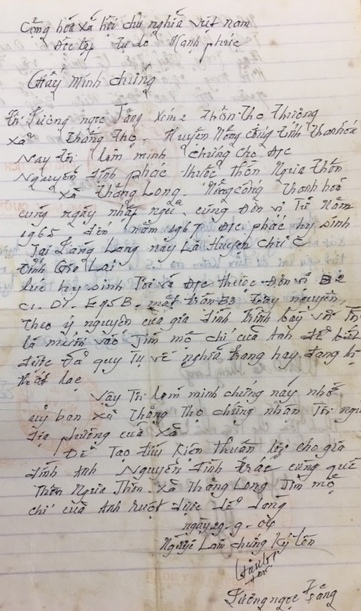 Cộng hòa xã hội chủ nghĩa việt nam
Độc lập Tự do Hạnh phúc
Giấy Minh chứng
Tôi Lương ngọc Tảng xóm 2 Thôn Thọ Thượng
xã Thăng Thọ. Huyện Nông Cống Tỉnh Thanh hóa
Nay Tôi làm minh chứng cho đ/c
Nguyễn Đình phác thuộc thôn Ngưa Thôn
xã Thăng Long. Nông Cống Thanh hoá
cùng ngày nhập ngũ. cùng Đơn vị Từ Năm
1965 đến năm 1967 đ/c phác hy sinh
Tại Làng Long nay Là Huyện chư
Tỉnh Gia Lai
lúc hy sinh Tôi và đ/c thuộc Đơn vị
C1. D7. E95B. mặt trận B3 Tây nguyên,
Theo ý nguyện của gia đình Trình bày với Tôi
là muốn vào Tìm mộ chí của Anh để biết
được đã quy Tụ về nghĩa trang hay đang bị
thất lạc
Vậy Tôi làm minh chứng này nhờ
uỷ ban xã Thăng Thọ chứng nhận Tôi
địa phương của xã
Để Tạo điều kiện thuận lợi cho gia
đình Anh Nguyễn Đình Trác cùng quê
Thôn Ngưa Thôn xã Thăng Long Tìm mộ
chí của Anh ruột được dễ dàng
ngày 29. 9. 04
Người Làm chứng Ký tên
Lương ngọc Tảng